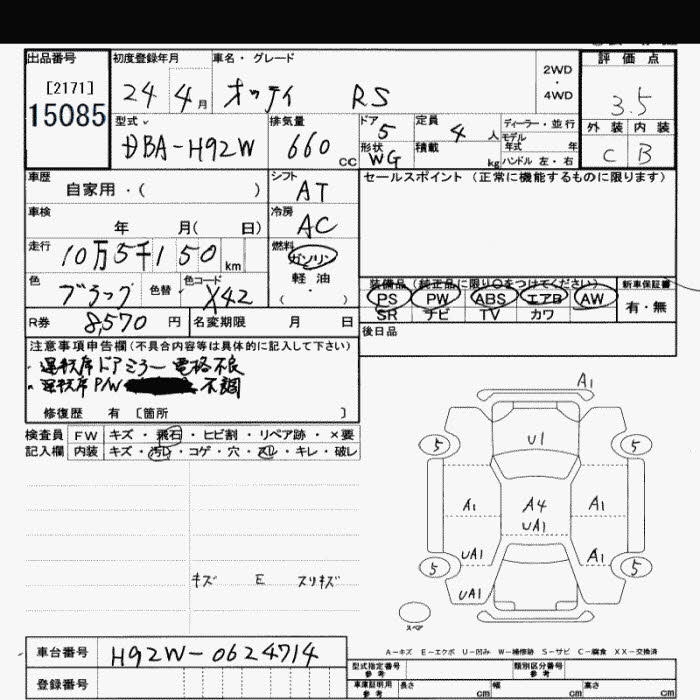 出品番号 初度登録年月 車名・グレード 評価点
[2171] 2WD・4WD
15085 24 4月 オッティ RS 3.5
型式 排気量 ドア 5 定員 4人 ディーラー・並行 外装 内装
DBA-H92W 660cc 形状 WG 積載 kg モデル年式 年 C B
ハンドル 左・右
車歴 シフト セールスポイント(正常に機能するものに限ります)
自家用・( ) AT
車検 冷房
年 月( 日) AC
走行 燃料
10万5千150km ガソリン
軽油
( ・ )
色 色替 色コード 装備品(純正品に限り○をつけてください) 新車保証書
ブラック X42 PS PW ABS エアB AW 有・無
SR ナビ TV カワ
R券 8,570円 名変期限 月 日 後日品
注意事項申告欄(不具合内容等は具体的に記入して下さい)
・運転席ドアミラー電格不良
・運転席P/W 不調
修復歴 有 [箇所 ]
検査員 FW キズ・飛石・ヒビ割・リペア跡・×要
記入欄 内装 キズ・汚レ・コゲ・穴・スレ・キレ・破レ
A1
5 U1 5
A1 A4 A1
UA1
UA1 A1
5 5
UA1
スペア
キズ E スリキズ
A-キズ E-エクボ U-凹み W-補修跡 S-サビ C-腐食 XX-交換済
車台番号 H92W-0624714
型式指定番号 参考 類別区分番号 参考
登録番号 車庫証明用 参考 長さ cm 幅 cm 高さ cm